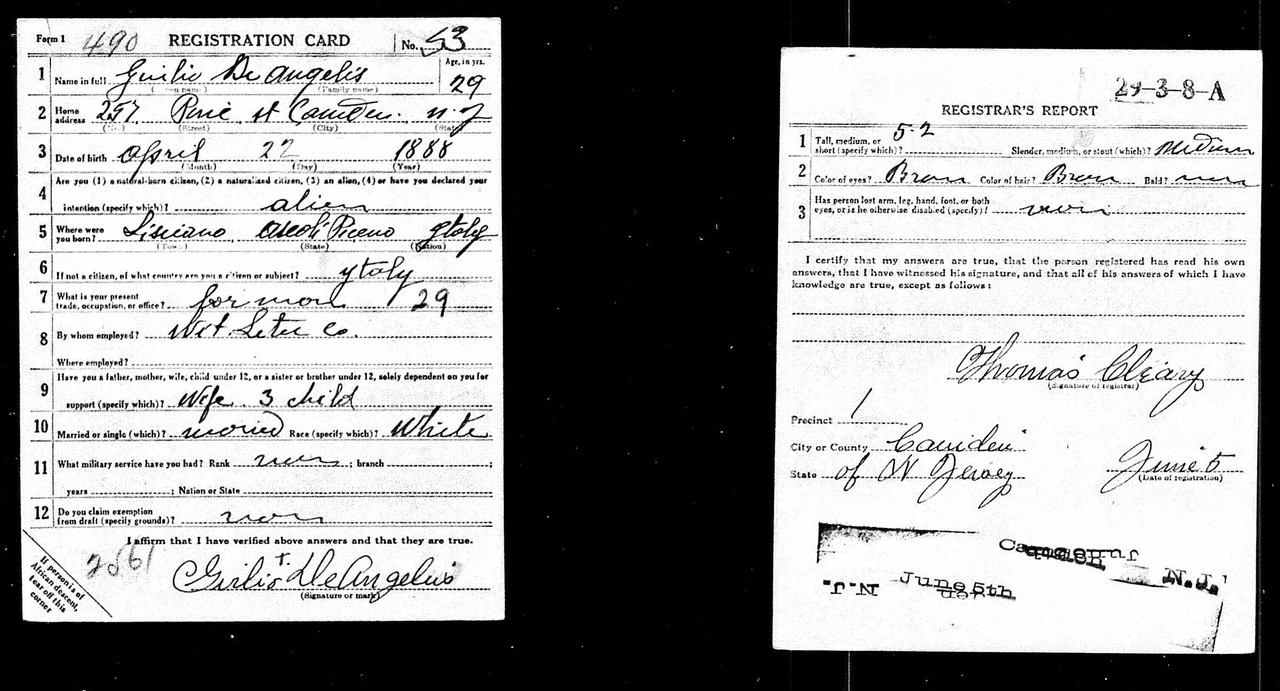 Form 1 490 REGISTRATION CARD No. 53
1 Name in full Guilio De Angelis Age, in yrs. 29
(Family name)
2 Home address 257 Pine st Camden. N. J
(No.) (Street) (City) (State)
3 Date of birth April 22 1888
(Month) (Day) (Year)
4 Are you (1) a natural-born citizen, (2) a naturalized citizen, (3) an alien, (4) or have you declared your
intention (specify which)? alien
5 Where were you born? Lisciano Ascoli Piceno Italy
(Town) (State) (Nation)
6 If not a citizen, of what country are you a citizen or subject? ytaly
7 What is your present trade, occupation, or office? for man 29
8 By whom employed? Co.
Where employed?
9 Have you a father, mother, wife, child under 12, or a sister or brother under 12, solely dependent on you for
support (specify which)? Wife 3 child
10 Married or single (which)? maried Race (specify which)? White
11 What military service have you had? Rank ; branch ;
years ; Nation or State
12 Do you claim exemption from draft (specify grounds)?
I affirm that I have verified above answers and that they are true.
2561
Gilio DeAngelis
(Signature or mark)
If person is of
African descent,
tear off this
corner
29-3-8-A
REGISTRAR'S REPORT
1 Tall, medium, or short (specify which)? 5-2 Slender, medium, or stout (which)? Medium
2 Color of eyes? Brown Color of hair? Brown Bald?
3 Has person lost arm, leg, hand, foot, or both
eyes, or is he otherwise disabled (specify)?
I certify that my answers are true, that the person registered has read his own
answers, that I have witnessed his signature, and that all of his answers of which I have
knowledge are true, except as follows:
Thomas Cleary
(Signature of registrar)
Precinct 1
City or County Camden
State of N Jersey June 5
(Date of registration)
N.J.
June 5th
N.J.